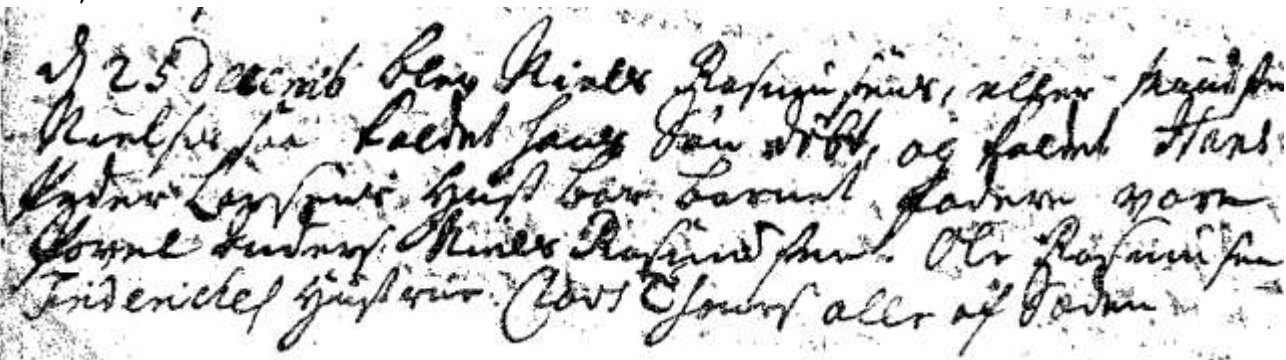 d 25 decemb blev Niels Rasmusens, eller
Nielsen saa kaldet hans Søn døbt, og kaldet Hans
Peder Larsens Hust bar barnet, fadere vare
Povel Anders. Niels Rasmussen. Ole Rasmusen
Friderichs Hustrue. alle af Søden